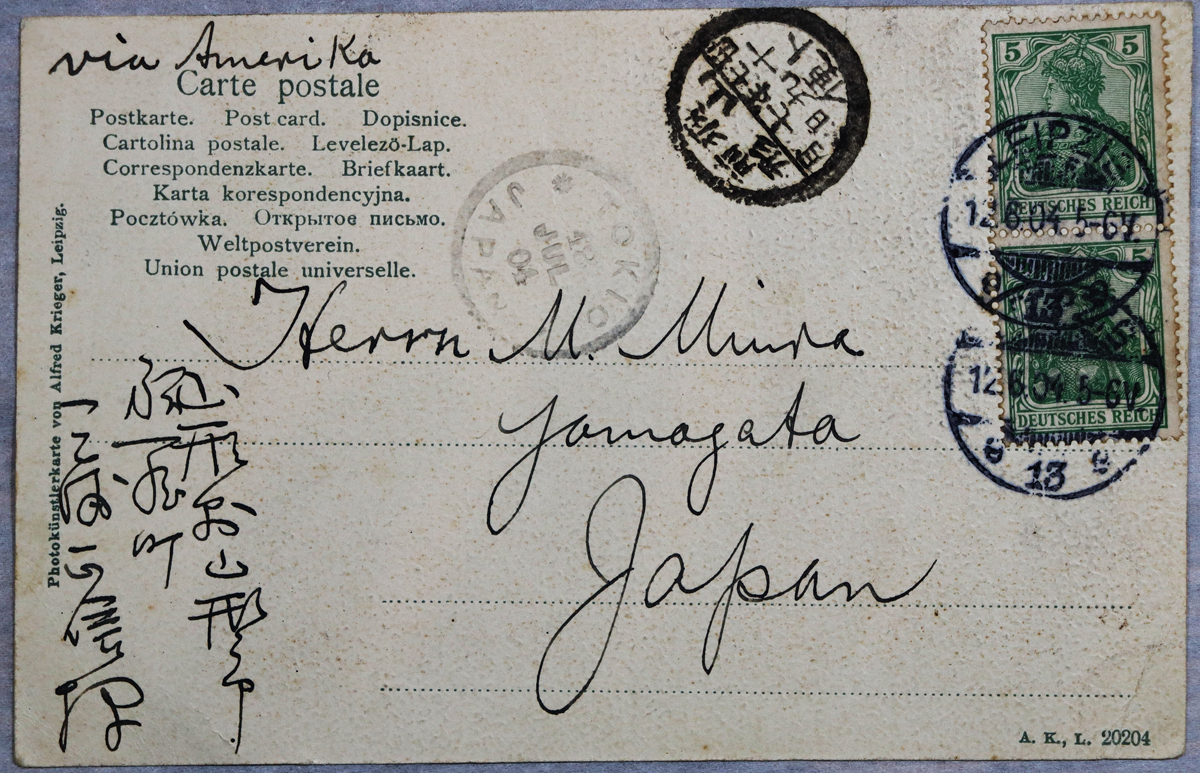 via Amerika
Carte postale
Postkarte. Post card. Dopisnice.
Cartolina postale. Levelező-Lap.
Correspondenzkarte. Briefkaart.
Karta korespondencyjna.
Pocztówka. Открытое письмо.
Weltpostverein.
Union postale universelle.
Photokünstlerkarte von Alfred Krieger, Leipzig.
TOKIO
12
JUL
04
JAPAN
5 5
LEIPZIG
12.6.04. 5-6V.
DEUTSCHES REICH
13
5
12.6.04. 5-6V
DEUTSCHES REICH
13
Herrn M. Miura
Yamagata
Japan
山形
町
A. K., L. 20204